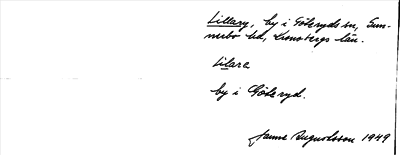 Lillary, by i Göteryds sn, Sun-
nerbo hd, Kronobergs län.
Lilare
by i Göteryd.
Janne Augustsson 1949